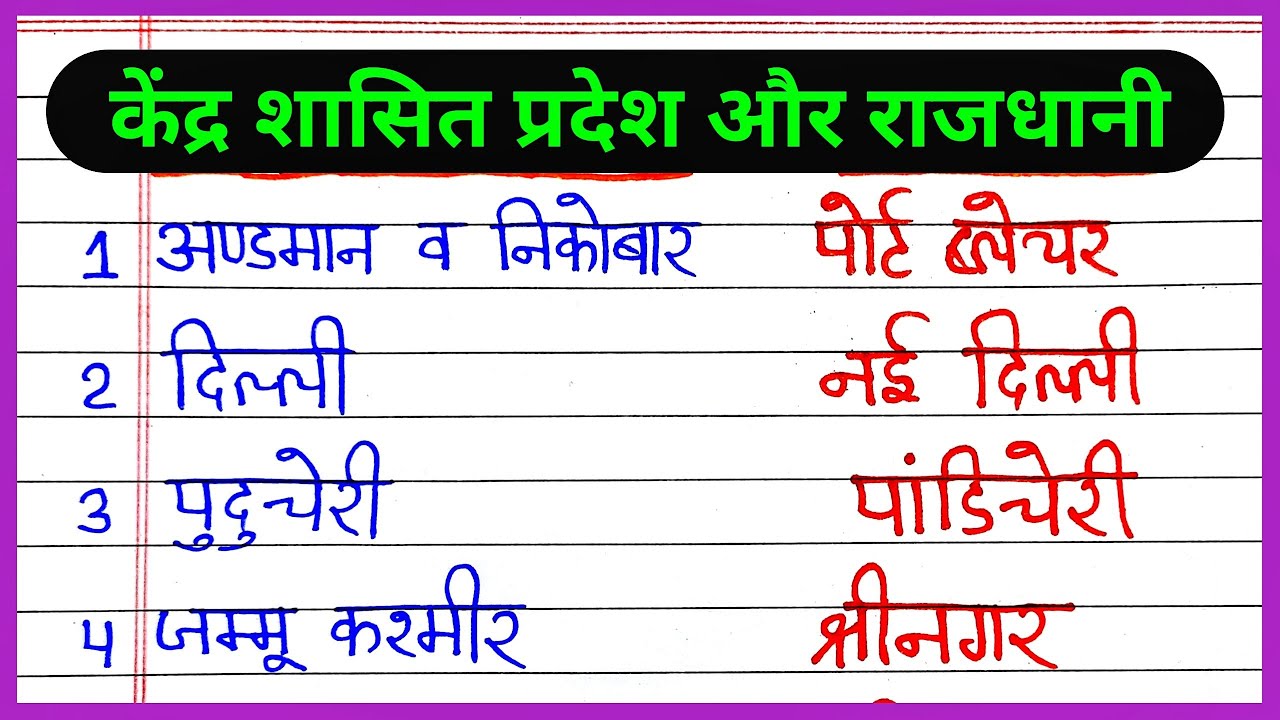 केंद्र शासित प्रदेश और राजधानी
1 अण्डमान व निकोबार पोर्ट ब्लेयर
2 दिल्ली नई दिल्ली
3 पुदुचेरी पांडिचेरी
4 जम्मू कश्मीर श्रीनगर